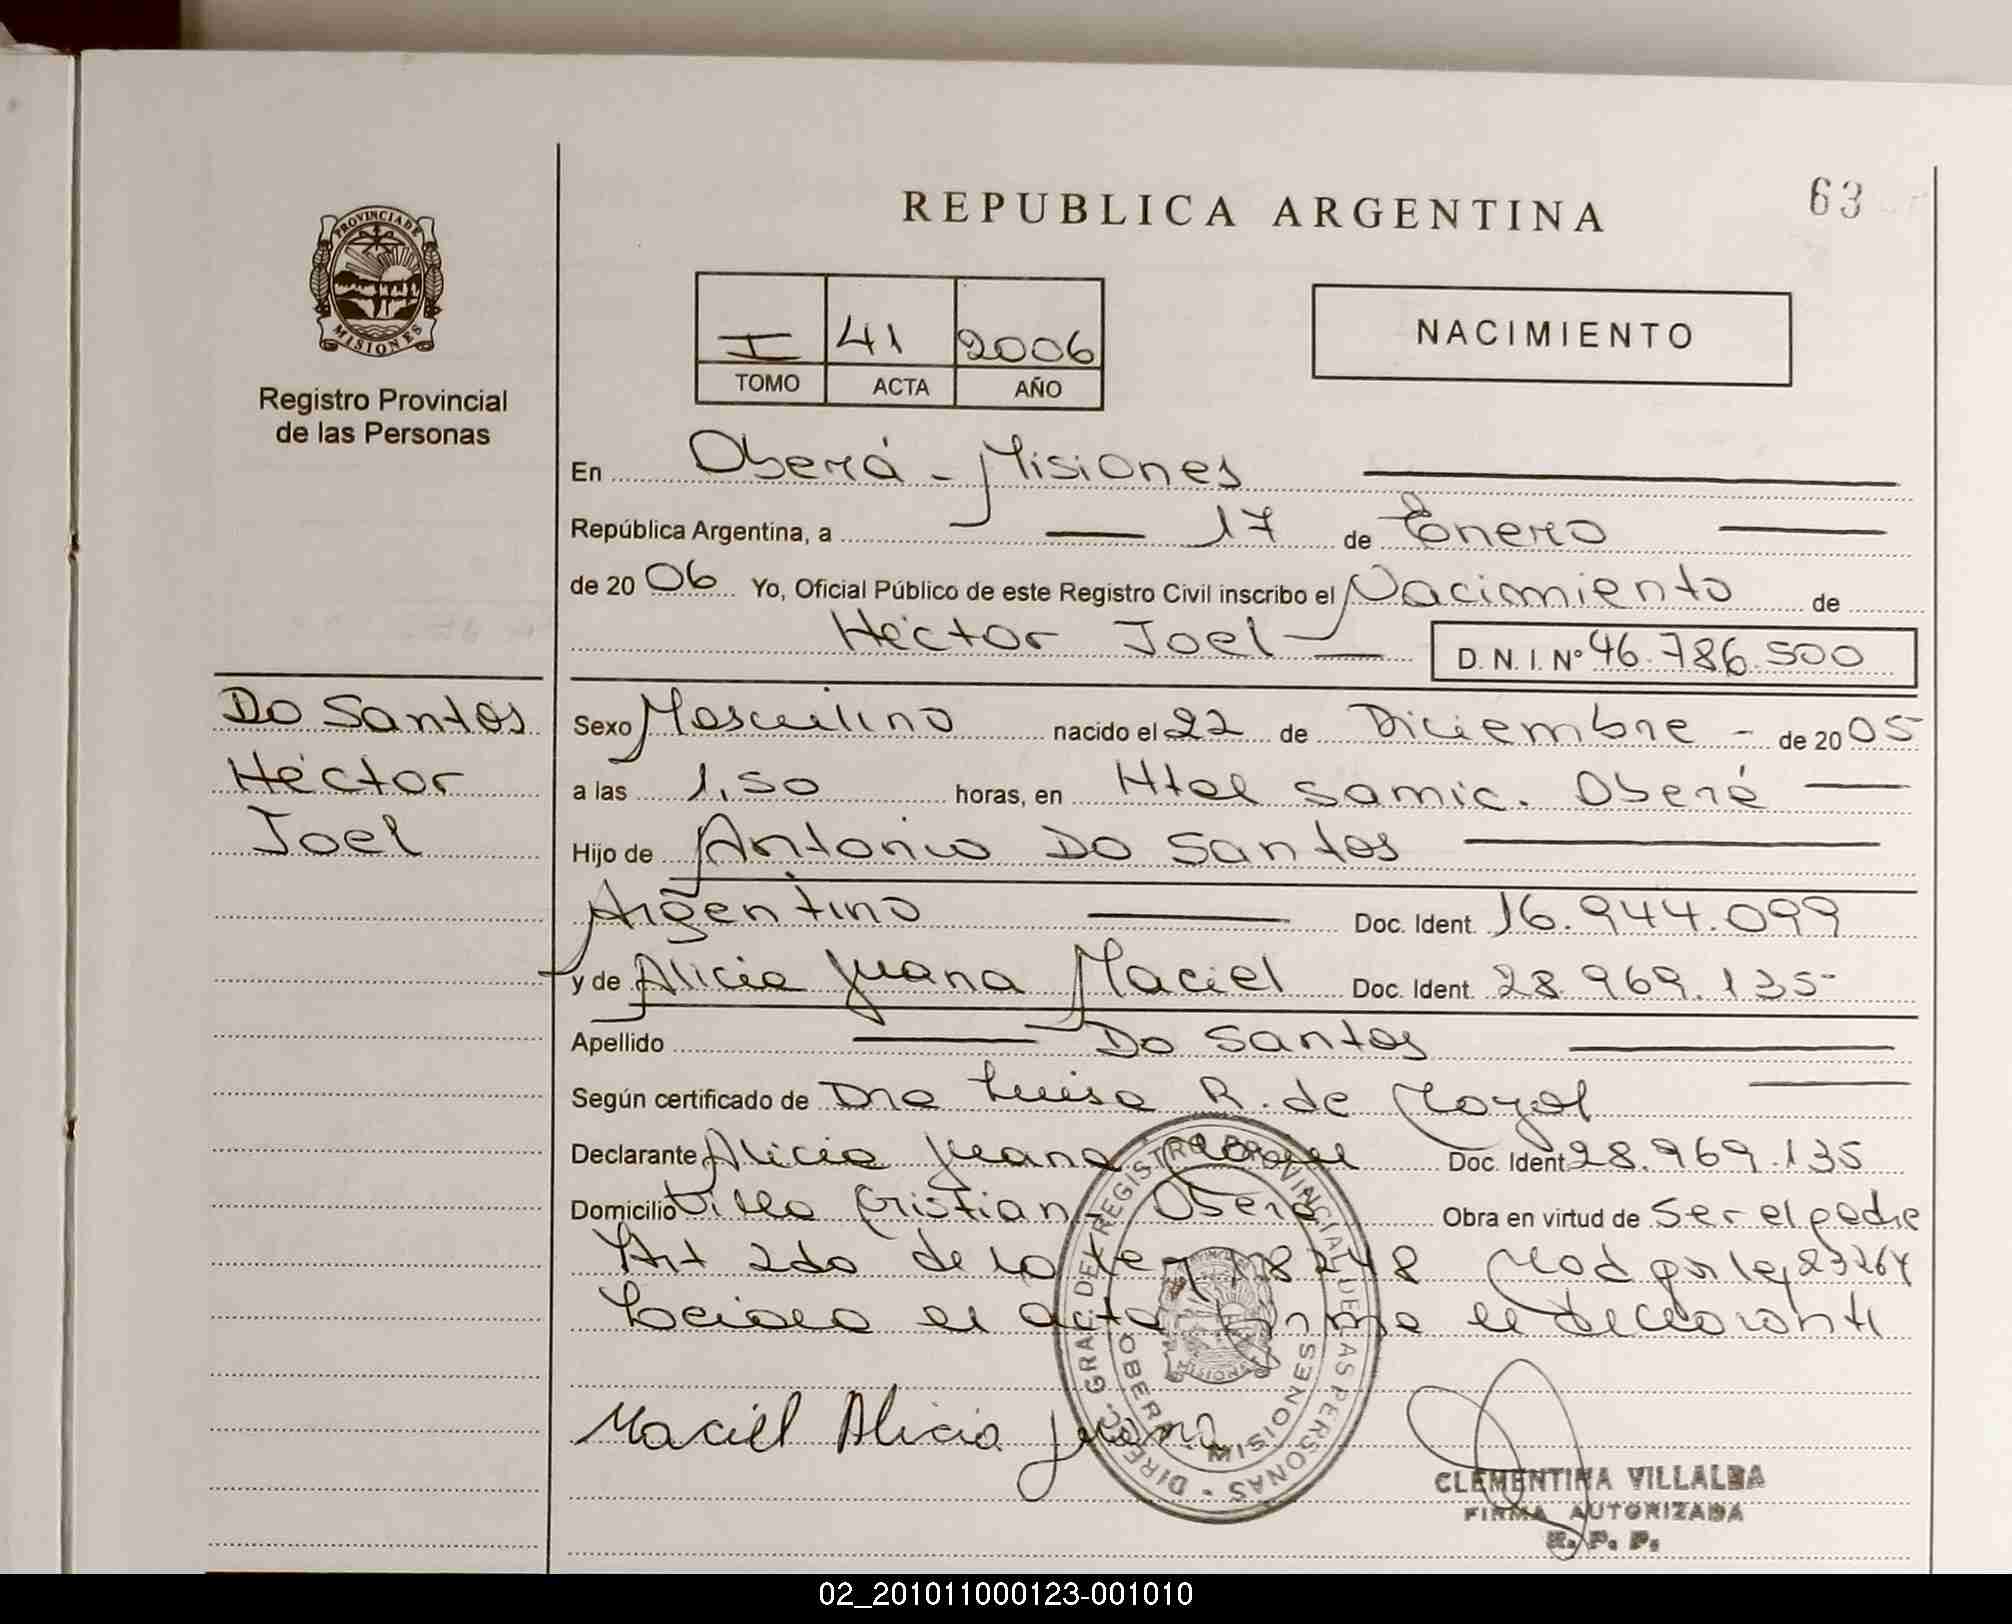 63
REPUBLICA ARGENTINA
PROVINCIA DE
MISIONES
Registro Provincial
de las Personas
I 41 2006
TOMO ACTA AÑO
NACIMIENTO
En Oberá - Misiones
República Argentina, a 17 de Enero
de 20 06 Yo, Oficial Público de este Registro Civil inscribo el Nacimiento de
Héctor Joel D. N. I. Nº 46.786.500
Do Santos
Héctor
Joel
Sexo Masculino nacido el 22 de Diciembre - de 20 05
a las 1,50 horas, en Htal Samic. Oberá
Hijo de Antonio Do Santos
Argentino Doc. Ident. 16.944.099
y de Alicia Juana Maciel Doc. Ident. 28.969.135
Apellido Do Santos
Según certificado de Dra Luisa R. de
Declarante Alicia Juana Maciel Doc. Ident 28.969.135
Domicilio Villa Cristian Oberá Obra en virtud de Ser el padre
Art 2do de la Ley 18248 Mod por ley 23264
Leida el acta firma el declarante
Maciel Alicia Juana
DIRECC. GRAL. DEL REGISTRO PROVINCIAL DE LAS PERSONAS -
OBERA MISIONES
CLEMENTINA VILLALBA
FIRMA AUTORIZADA
R. P. P.
02_201011000123-001010